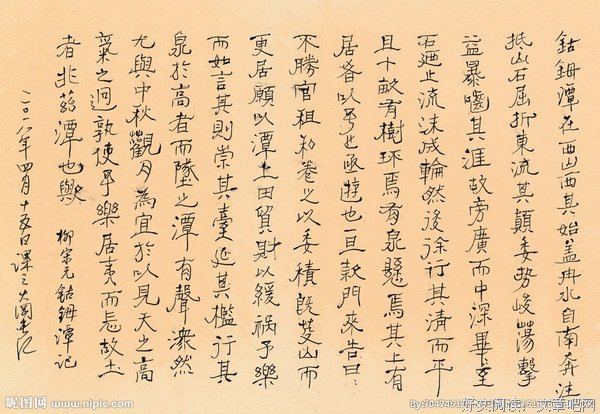 钴鉧潭在西山西其始盖冉水自南奔注
抵山石屈折東流其顛委势峻蕩擊
益暴嚙其涯故旁廣而中深畢至
石廼止流沫成輪然後徐行其清而平
且十畝有樹环焉有泉懸焉其上有
居者以予之亟遊也一旦款門來告曰:
不勝官租私券之以委積既芟山而
更居願以潭上田貿財以緩祸予樂
而如言其則崇其臺延其檻行其
泉於高者而墜之潭有聲潀然
尤與中秋觀月為宜於以見天之高
氣之迥孰使予樂居夷而忘故土
者非茲潭也歟 柳宗元钴鉧潭记
二〇一八年四月十五日課之
昵图网 www.nipic.com